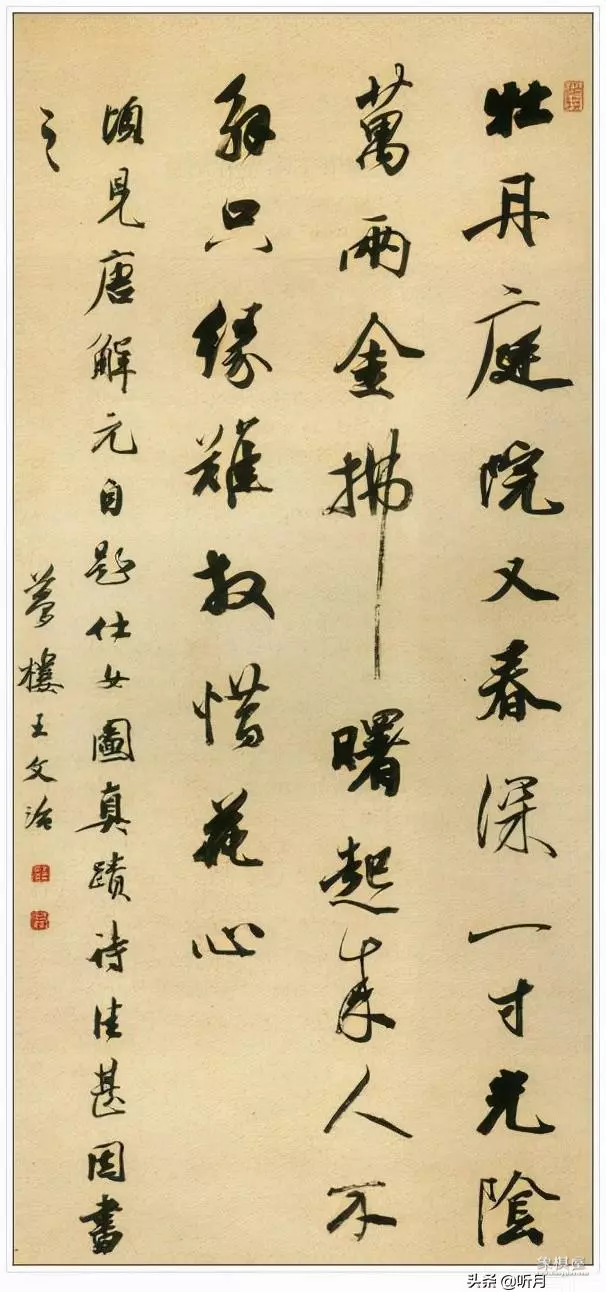 牡丹庭院又春深一寸光陰
萬兩金拂曙起來人不
解只緣難放惜花心
頃見唐解元自題仕女圖真蹟詩佳甚因書
之
夢樓王文治
头条 @听月